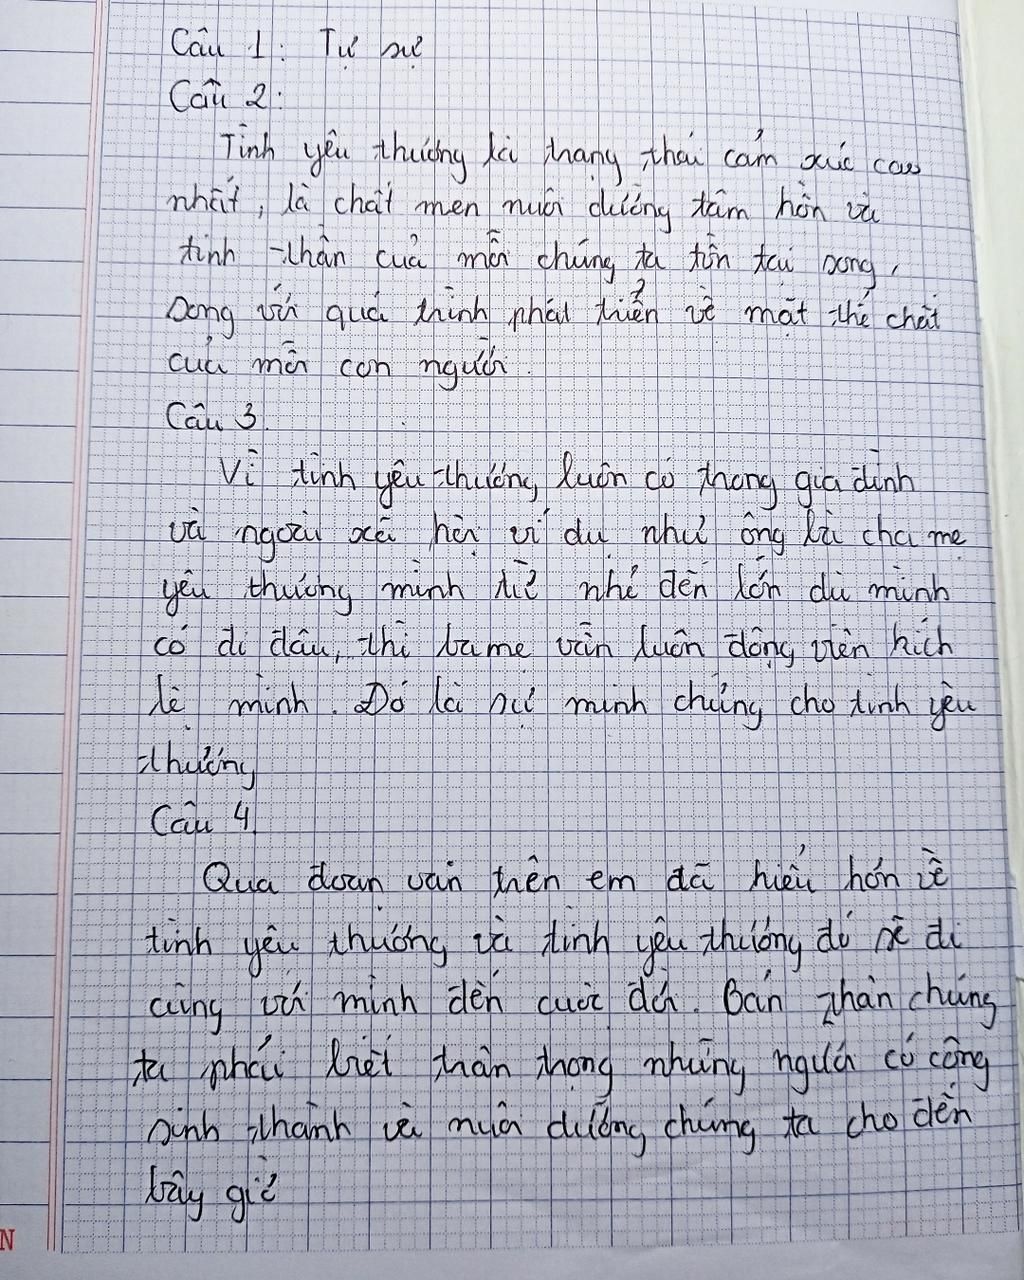 Câu 1: Tự sự
Câu 2:
Tình yêu thương là trạng thái cảm xúc cao
nhất, là chất men nuôi dưỡng tâm hồn và
tinh thần của mỗi chúng ta tồn tại song,
Song với quá trình phát triển về mặt thể chất
của mỗi con người.
Câu 3.
Vì tình yêu thương luôn có trong gia đình
và ngoài xã hội ví dụ như ông là cha mẹ
yêu thương mình từ nhỏ đến lớn dù mình
có đi đâu, thì ba mẹ vẫn luôn động viên kích
lệ mình. Đó là sự minh chứng cho tình yêu
thương
Câu 4.
Qua đoạn văn trên em đã hiểu hơn về
tình yêu thương và tình yêu thương đó sẽ đi
cùng với mình đến cuộc đời. Bản thân chúng
ta phải biết trân trọng những người có công
sinh thành và nuôi dưỡng chúng ta cho đến
bây giờ
N